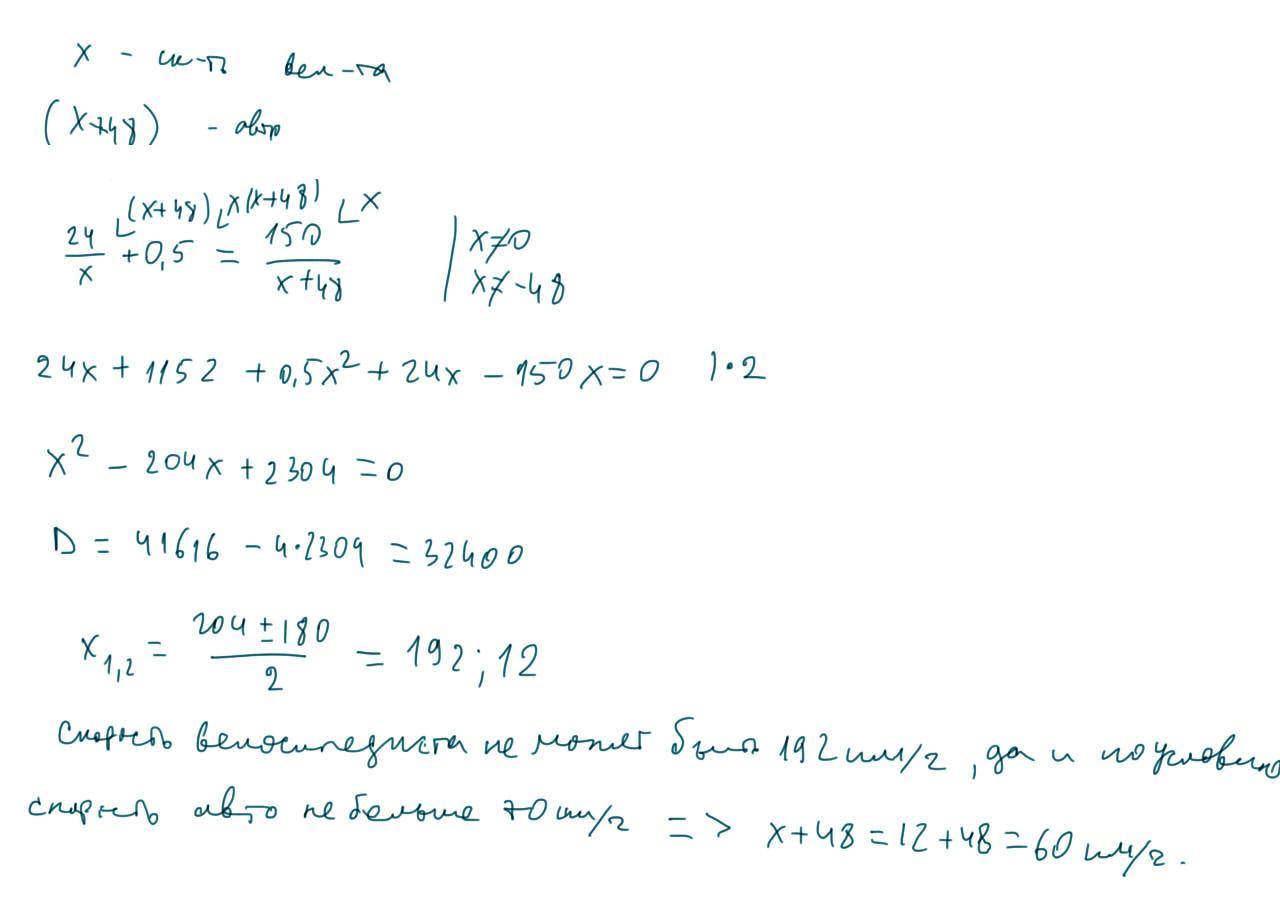 x - ск-ть вел-та
(x+48) - авто
24/x ⌊(x+48) + 0,5 ⌊x(x+48) = 150/(x+48) ⌊x | x≠0
x≠-48
24x + 1152 + 0,5x² + 24x - 150x = 0 |·2
x² - 204x + 2304 = 0
D = 41616 - 4·2304 = 32400
x₁,₂ = (204 ± 180)/2 = 192; 12
Скорость велосипедиста не может быть 192 км/ч, да и по условию
скорость авто не больше 70 км/ч => x+48 = 12+48 = 60 км/ч.